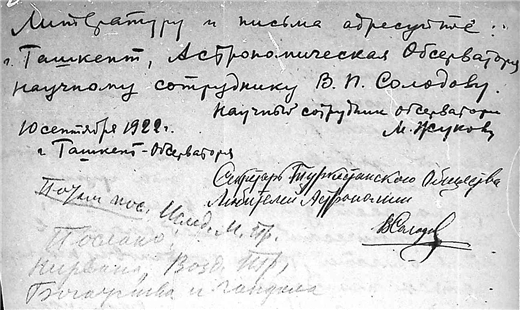 Литературу и письма адресуйте:
г. Ташкент, Астрономическая Обсерватория
научному сотруднику В. П. Солодову.
Научный сотрудник обсерватори
М. Жуков
10 сентября 1922 г.
г Ташкент-Обсерватория
Секретарь Туркестанского Общества
Любителей Астрономии
ВСолодов
пос. М. пр.
Послано,
Возд.
и